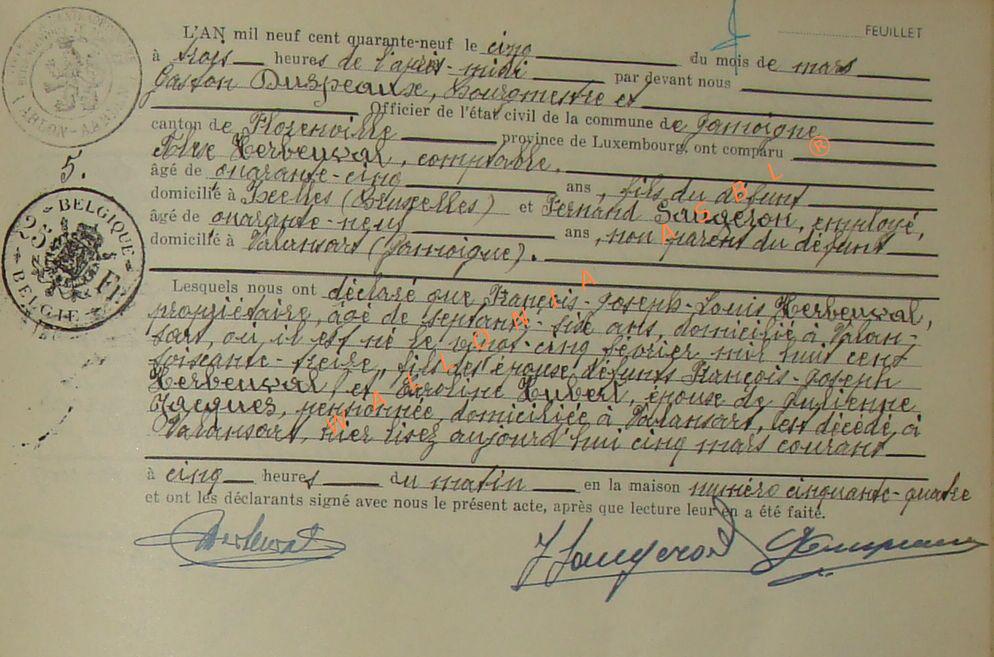 FEUILLET
L'AN mil neuf cent quarante-neuf le cinq du mois de mars
à trois heures de l'après-midi par devant nous
Gaston Duspeaux, Bourgmestre et
Officier de l'état civil de la commune de Jamoigne
canton de Florenville province de Luxembourg, ont comparu
Herbeuval, comptable,
5.
âgé de quarante-cinq ans, fils du défunt
domicilié à Ixelles (Bruxelles) et Fernand Saugeron, employé,
âgé de quarante-neuf ans, non parent du défunt
domicilié à Valansart (Jamoigne).
BELGIQUE
25 Fr
BELGIE
Lesquels nous ont déclaré que François-Joseph-Louis Herbeuval,
propriétaire, âgé de septante-six ans, domicilié à Valan-
sart, où il est né le vingt-cinq février mil huit cent
soixante-treize, fils des époux défunts François-Joseph
Herbeuval et Caroline Hubert, époux de Julienne
Jacques, pensionnée, domiciliée à Valansart, est décédé à
Valansart, hier lisez aujourd'hui cinq mars courant
à cinq heures du matin en la maison numéro cinquante-quatre
et ont les déclarants signé avec nous le présent acte, après que lecture leur en a été faite.
Herbeuval
Saugeron
WALIDNIA ASBL ®